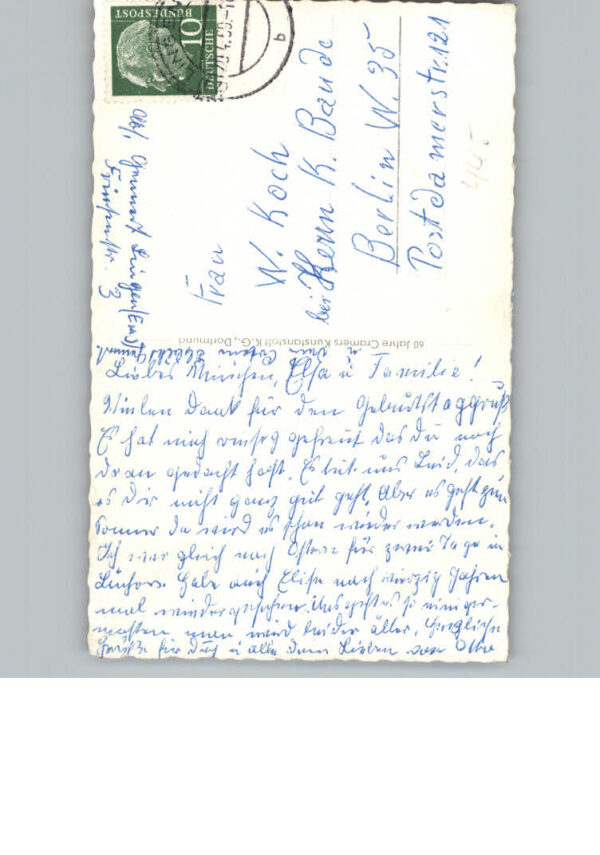 DEUTSCHE
BUNDESPOST
10
b
Frau
W. Koch
bei Herrn K. Bande
Berlin W. 35
Postdamerstr. 121
445
Abs. Lingen/Ems
3
60 Jahre Cramers Kunstanstalt K.G., Dortmund
Liebes Minchen, Elsa u Familie!
Vielen Dank für den Geburtstaggruß
Es hat mich gefreut das du noch
dran gedacht hast. Es tut uns Leid, das
es Dir nicht ganz gut geht, Aber es geht zum
Sommer da wird es schon wieder werden.
Ich war gleich nach Ostern für zwei Tage in
Lüchow. Habe auch Elise nach vierzig Jahren
mal wiedergesehen. Uns geht es so einiger-
maßen man wird leider älter. Herzliche
Grüße für Dich u alle Deine Lieben von